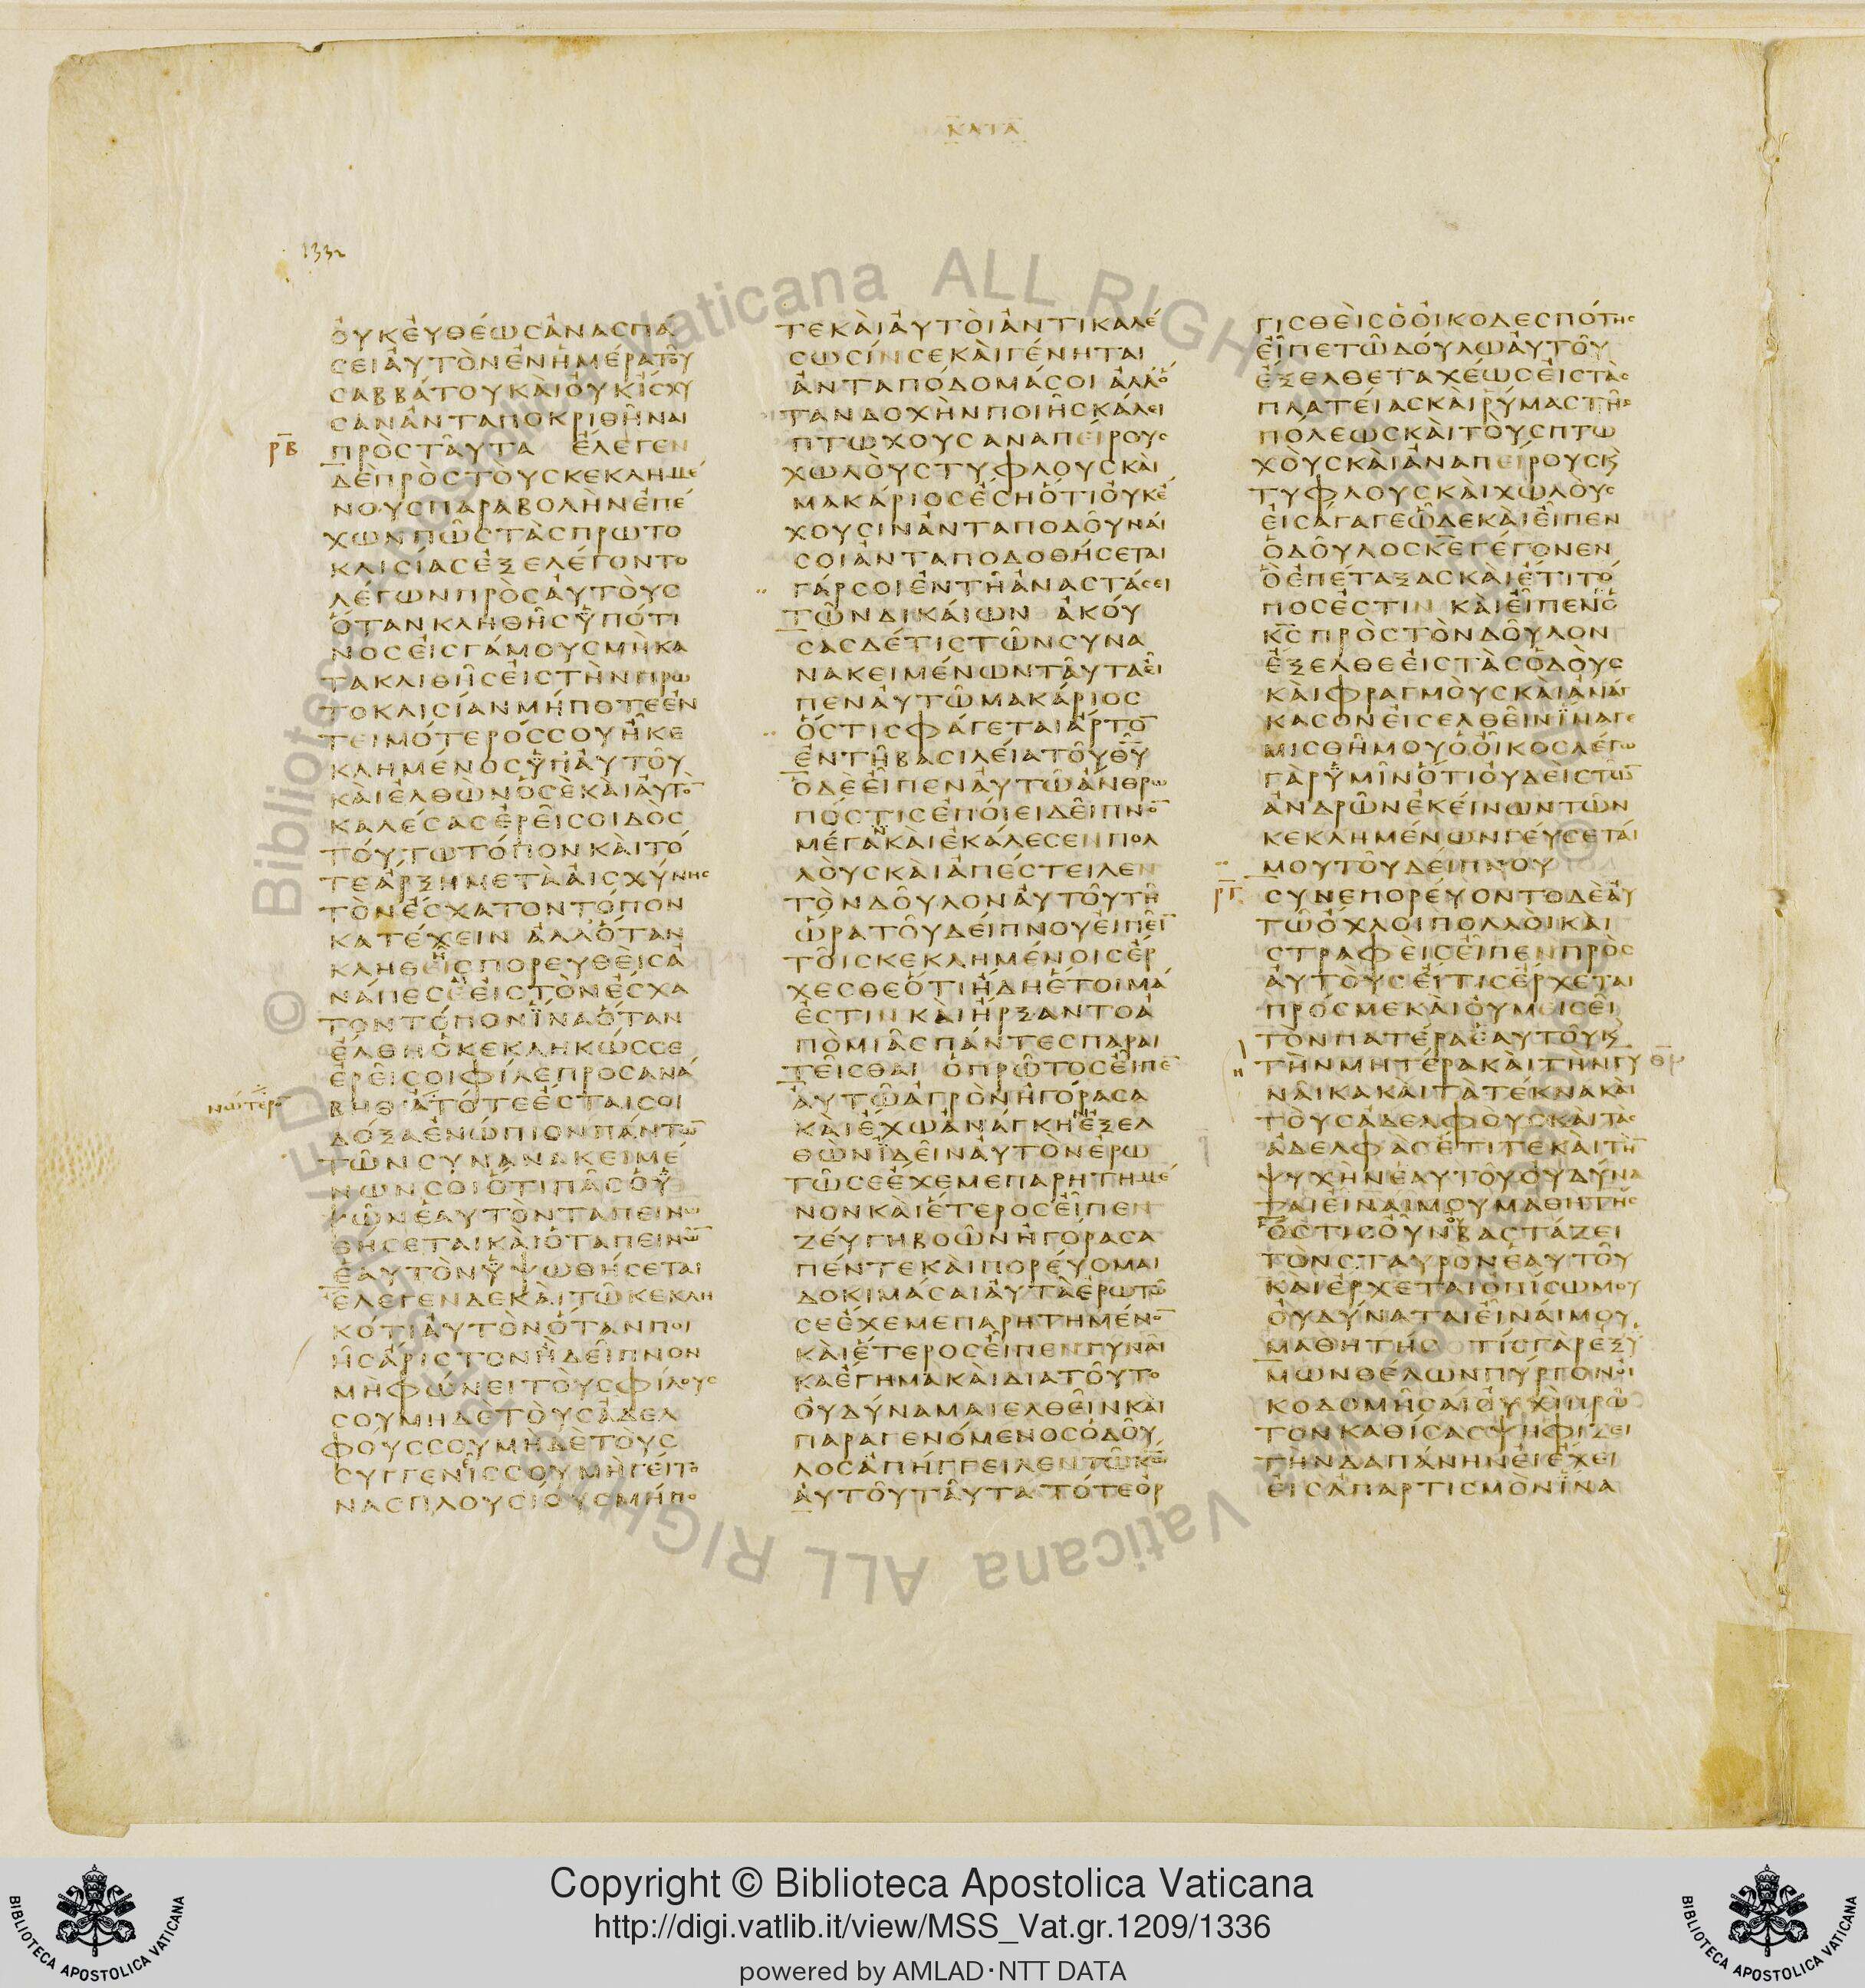 ΚΑΤΑ
1332
ΟΥΚΕΥΘΕΩΣΑΝΑΣΠΑ
ΣΕΙΑΥΤΟΝΕΝΗΜΕΡΑΤΟΥ
ΣΑΒΒΑΤΟΥΚΑΙΟΥΚΙΣΧΥ
ΣΑΝΑΝΤΑΠΟΚΡΙΘΗΝΑΙ
ΡΒ ΠΡΟΣΤΑΥΤΑ ΕΛΕΓΕΝ
ΔΕΠΡΟΣΤΟΥΣΚΕΚΛΗΜΕ
ΝΟΥΣΠΑΡΑΒΟΛΗΝΕΠΕ
ΧΩΝΠΩΣΤΑΣΠΡΩΤΟ
ΚΛΙΣΙΑΣΕΞΕΛΕΓΟΝΤΟ
ΛΕΓΩΝΠΡΟΣΑΥΤΟΥΣ
ΟΤΑΝΚΛΗΘΗΣΥΠΟΤΙ
ΝΟΣΕΙΣΓΑΜΟΥΣΜΗΚΑ
ΤΑΚΛΙΘΗΣΕΙΣΤΗΝΠΡΩ
ΤΟΚΛΙΣΙΑΝΜΗΠΟΤΕΕΝ
ΤΕΙΜΟΤΕΡΟΣΣΟΥΗΚΕ
ΚΛΗΜΕΝΟΣΥΠΑΥΤΟΥ
ΚΑΙΕΛΘΩΝΟΣΕΚΑΙΑΥΤΟ̅
ΚΑΛΕΣΑΣΕΡΕΙΣΟΙΔΟΣ
ΤΟΥΤΩΤΟΠΟΝΚΑΙΤΟ
ΤΕΑΡΞΗΜΕΤΑΑΙΣΧΥΝΗΣ
ΤΟΝΕΣΧΑΤΟΝΤΟΠΟΝ
ΚΑΤΕΧΕΙΝ ΑΛΛΟΤΑΝ
ΚΛΗΘΗΣΠΟΡΕΥΘΕΙΣΑ
ΝΑΠΕΣΕΕΙΣΤΟΝΕΣΧΑ
ΤΟΝΤΟΠΟΝΙΝΑΟΤΑΝ
ΕΛΘΗΟΚΕΚΛΗΚΩΣΣΕ
ΕΡΕΙΣΟΙΦΙΛΕΠΡΟΣΑΝΑ
ΒΗΘΙΑΤΟΤΕΕΣΤΑΙΣΟΙ
ΔΟΞΑΕΝΩΠΙΟΝΠΑΝΤΩ̅
ΤΩΝΣΥΝΑΝΑΚΕΙΜΕ
ΝΩΝΣΟΙΟΤΙΠΑΣΟΥ
ΨΩΝΕΑΥΤΟΝΤΑΠΕΙΝΩ
ΘΗΣΕΤΑΙΚΑΙΟΤΑΠΕΙΝΩ̅
ΕΑΥΤΟΝΥΨΩΘΗΣΕΤΑΙ
ΕΛΕΓΕΝΔΕΚΑΙΤΩΚΕΚΛΗ
ΚΟΤΙΑΥΤΟΝΟΤΑΝΠΟΙ
ΗΣΑΡΙΣΤΟΝΗΔΕΙΠΝΟΝ
ΜΗΦΩΝΕΙΤΟΥΣΦΙΛΟΥΣ
ΣΟΥΜΗΔΕΤΟΥΣΑΔΕΛ
ΦΟΥΣΣΟΥΜΗΔΕΤΟΥΣ
ΣΥΓΓΕΝΙΣΣΟΥΜΗΓΕΙΤΟ
ΝΑΣΠΛΟΥΣΙΟΥΣΜΗΠΟ
ΤΕΚΑΙΑΥΤΟΙΑΝΤΙΚΑΛΕ
ΣΩΣΙΝΣΕΚΑΙΓΕΝΗΤΑΙ
ΑΝΤΑΠΟΔΟΜΑΣΟΙ ΑΛΛΟ
ΤΑΝΔΟΧΗΝΠΟΙΗΣΚΑΛΕΙ
ΠΤΩΧΟΥΣΑΝΑΠΕΙΡΟΥΣ
ΧΩΛΟΥΣΤΥΦΛΟΥΣΚΑΙ
ΜΑΚΑΡΙΟΣΕΣΗΟΤΙΟΥΚΕ
ΧΟΥΣΙΝΑΝΤΑΠΟΔΟΥΝΑΙ
ΣΟΙΑΝΤΑΠΟΔΟΘΗΣΕΤΑΙ
ΓΑΡΣΟΙΕΝΤΗΑΝΑΣΤΑΣΕΙ
ΤΩΝΔΙΚΑΙΩΝ ΑΚΟΥ
ΣΑΣΔΕΤΙΣΤΩΝΣΥΝΑ
ΝΑΚΕΙΜΕΝΩΝΤΑΥΤΑΕΙ
ΠΕΝΑΥΤΩΜΑΚΑΡΙΟΣ
ΟΣΤΙΣΦΑΓΕΤΑΙΑΡΤΟ̅
ΕΝΤΗΒΑΣΙΛΕΙΑΤΟΥΘ̅Υ̅
ΟΔΕΕΙΠΕΝΑΥΤΩΑΝΘΡΩ
ΠΟΣΤΙΣΕΠΟΙΕΙΔΕΙΠΝΟ̅
ΜΕΓΑΝΚΑΙΕΚΑΛΕΣΕΝΠΟΛ
ΛΟΥΣΚΑΙΑΠΕΣΤΕΙΛΕΝ
ΤΟΝΔΟΥΛΟΝΑΥΤΟΥΤΗ
ΩΡΑΤΟΥΔΕΙΠΝΟΥΕΙΠΕΙ̅
ΤΟΙΣΚΕΚΛΗΜΕΝΟΙΣΕΡ
ΧΕΣΘΕΟΤΙΗΔΗΕΤΟΙΜΑ
ΕΣΤΙΝΚΑΙΗΡΞΑΝΤΟΑ
ΠΟΜΙΑΣΠΑΝΤΕΣΠΑΡΑΙ
ΤΕΙΣΘΑΙ ΟΠΡΩΤΟΣΕΙΠΕ̅
ΑΥΤΩΑΓΡΟΝΗΓΟΡΑΣΑ
ΚΑΙΕΧΩΑΝΑΓΚΗΝΕΞΕΛ
ΘΩΝΙΔΕΙΝΑΥΤΟΝΕΡΩ
ΤΩΣΕΕΧΕΜΕΠΑΡΗΤΗΜΕ
ΝΟΝΚΑΙΕΤΕΡΟΣΕΙΠΕΝ
ΖΕΥΓΗΒΟΩΝΗΓΟΡΑΣΑ
ΠΕΝΤΕΚΑΙΠΟΡΕΥΟΜΑΙ
ΔΟΚΙΜΑΣΑΙΑΥΤΑΕΡΩΤΩ
ΣΕΕΧΕΜΕΠΑΡΗΤΗΜΕΝΟ̅
ΚΑΙΕΤΕΡΟΣΕΙΠΕΝΓΥΝΑΙ
ΚΑΕΓΗΜΑΚΑΙΔΙΑΤΟΥΤΟ
ΟΥΔΥΝΑΜΑΙΕΛΘΕΙΝΚΑΙ
ΠΑΡΑΓΕΝΟΜΕΝΟΣΟΔΟΥ
ΛΟΣΑΠΗΓΓΕΙΛΕΝΤΩΚ̅Ω̅
ΑΥΤΟΥΤΑΥΤΑΤΟΤΕΟΡ
ΓΙΣΘΕΙΣΟΟΙΚΟΔΕΣΠΟΤΗΣ
ΕΙΠΕΤΩΔΟΥΛΩΑΥΤΟΥ
ΕΞΕΛΘΕΤΑΧΕΩΣΕΙΣΤΑΣ
ΠΛΑΤΕΙΑΣΚΑΙΡΥΜΑΣΤΗΣ
ΠΟΛΕΩΣΚΑΙΤΟΥΣΠΤΩ
ΧΟΥΣΚΑΙΑΝΑΠΕΙΡΟΥΣΚ
ΤΥΦΛΟΥΣΚΑΙΧΩΛΟΥΣ
ΕΙΣΑΓΑΓΕΩΔΕΚΑΙΕΙΠΕΝ
ΟΔΟΥΛΟΣΚ̅Ε̅ΓΕΓΟΝΕΝ
ΟΕΠΕΤΑΞΑΣΚΑΙΕΤΙΤΟ
ΠΟΣΕΣΤΙΝ ΚΑΙΕΙΠΕΝΟ
Κ̅Σ̅ΠΡΟΣΤΟΝΔΟΥΛΟΝ
ΕΞΕΛΘΕΕΙΣΤΑΣΟΔΟΥΣ
ΚΑΙΦΡΑΓΜΟΥΣΚΑΙΑΝΑΓ
ΚΑΣΟΝΕΙΣΕΛΘΕΙΝΙΝΑΓΕ
ΜΙΣΘΗΜΟΥΟΟΙΚΟΣΛΕΓΩ
ΓΑΡΥΜΙΝΟΤΙΟΥΔΕΙΣΤΩ̅
ΑΝΔΡΩΝΕΚΕΙΝΩΝΤΩΝ
ΚΕΚΛΗΜΕΝΩΝΓΕΥΣΕΤΑΙ
ΜΟΥΤΟΥΔΕΙΠΝΟΥ
ΡΓ ΣΥΝΕΠΟΡΕΥΟΝΤΟΔΕΑΥ
ΤΩΟΧΛΟΙΠΟΛΛΟΙΚΑΙ
ΣΤΡΑΦΕΙΣΕΙΠΕΝΠΡΟΣ
ΑΥΤΟΥΣΕΙΤΙΣΕΡΧΕΤΑΙ
ΠΡΟΣΜΕΚΑΙΟΥΜΕΙΣΕΙ
ΤΟΝΠΑΤΕΡΑΕΑΥΤΟΥΚ
ΤΗΝΜΗΤΕΡΑΚΑΙΤΗΝΓΥ
ΝΑΙΚΑΚΑΙΤΑΤΕΚΝΑΚΑΙ
ΤΟΥΣΑΔΕΛΦΟΥΣΚΑΙΤΑΣ
ΑΔΕΛΦΑΣΕΤΙΤΕΚΑΙΤΗ̅
ΨΥΧΗΝΕΑΥΤΟΥΟΥΔΥΝΑ
ΤΑΙΕΙΝΑΙΜΟΥΜΑΘΗΤΗΣ
ΟΣΤΙΣΟΥΝΟΥΒΑΣΤΑΖΕΙ
ΤΟΝΣΤΑΥΡΟΝΕΑΥΤΟΥ
ΚΑΙΕΡΧΕΤΑΙΟΠΙΣΩΜΟΥ
ΟΥΔΥΝΑΤΑΙΕΙΝΑΙΜΟΥ
ΜΑΘΗΤΗΣ ΤΙΣΓΑΡΕΞΥ
ΜΩΝΘΕΛΩΝΠΥΡΓΟΝΟΙ
ΚΟΔΟΜΗΣΑΙΟΥΧΙΠΡΩ
ΤΟΝΚΑΘΙΣΑΣΨΗΦΙΖΕΙ
ΤΗΝΔΑΠΑΝΗΝΕΙΕΧΕΙ
ΕΙΣΑΠΑΡΤΙΣΜΟΝΙΝΑ
Copyright © Biblioteca Apostolica Vaticana
http://digi.vatlib.it/view/MSS_Vat.gr.1209/1336
powered by AMLAD·NTT DATA
BIBLIOTECA APOSTOLICA VATICANA
BIBLIOTECA APOSTOLICA VATICANA